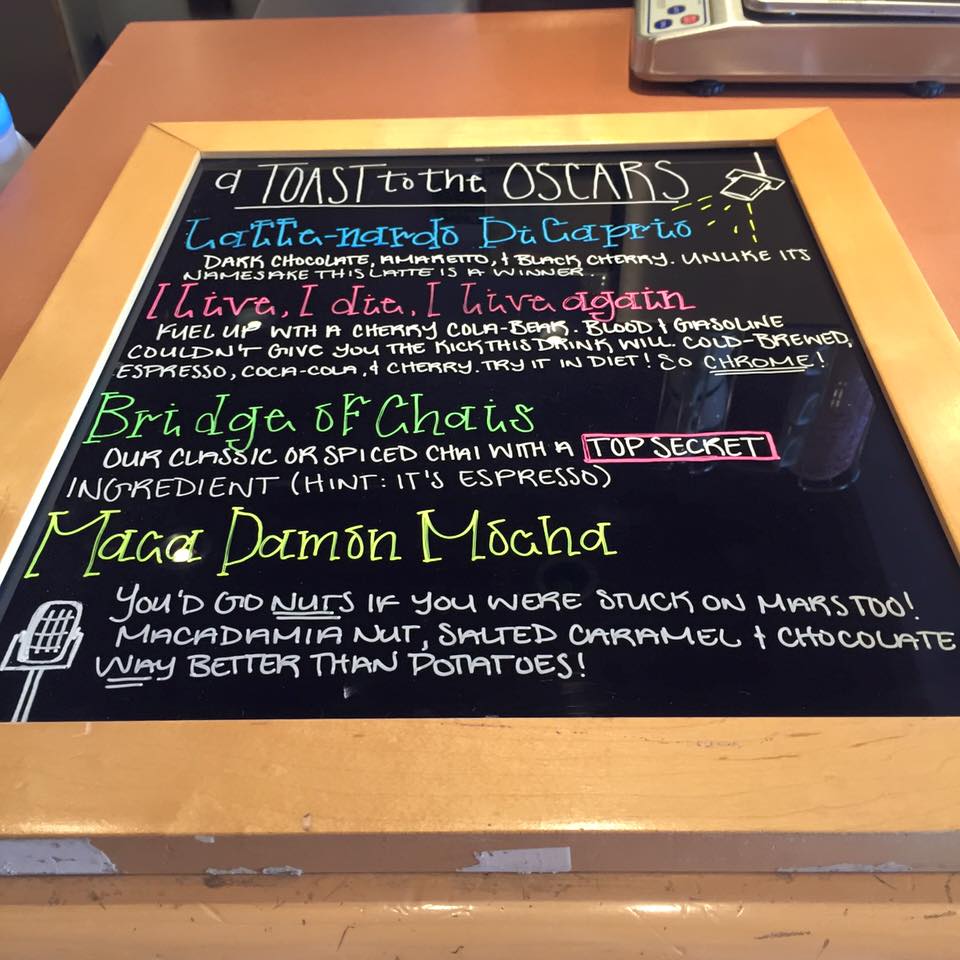 a TOAST to the OSCARS
Latte-nardo DiCaprio
DARK CHOCOLATE, AMARETTO, & BLACK CHERRY. UNLIKE ITS
NAMESAKE THIS LATTE IS A WINNER...
I live, I die, I live again
FUEL UP WITH A CHERRY COLA-BEAR. BLOOD & GASOLINE
COULDN'T GIVE YOU THE KICK THIS DRINK WILL. COLD-BREWED,
ESPRESSO, COCA-COLA, & CHERRY. TRY IT IN DIET! SO CHROME!
Bridge of Chais
OUR CLASSIC OR SPICED CHAI WITH A TOP SECRET
INGREDIENT (HINT: IT'S ESPRESSO)
Maca Damon Mocha
YOU'D GO NUTS IF YOU WERE STUCK ON MARS TOO!
MACADAMIA NUT, SALTED CARAMEL & CHOCOLATE
WAY BETTER THAN POTATOES!